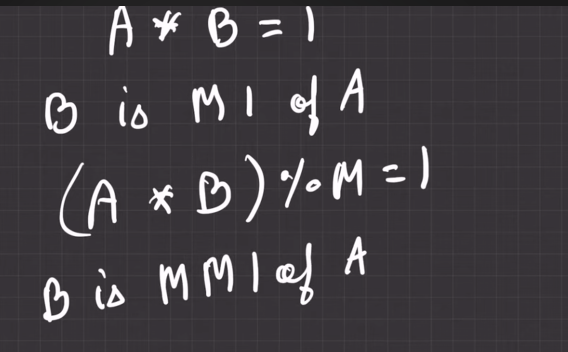 A * B = 1
B is MI of A
(A * B) % M = 1
B is MMI of A